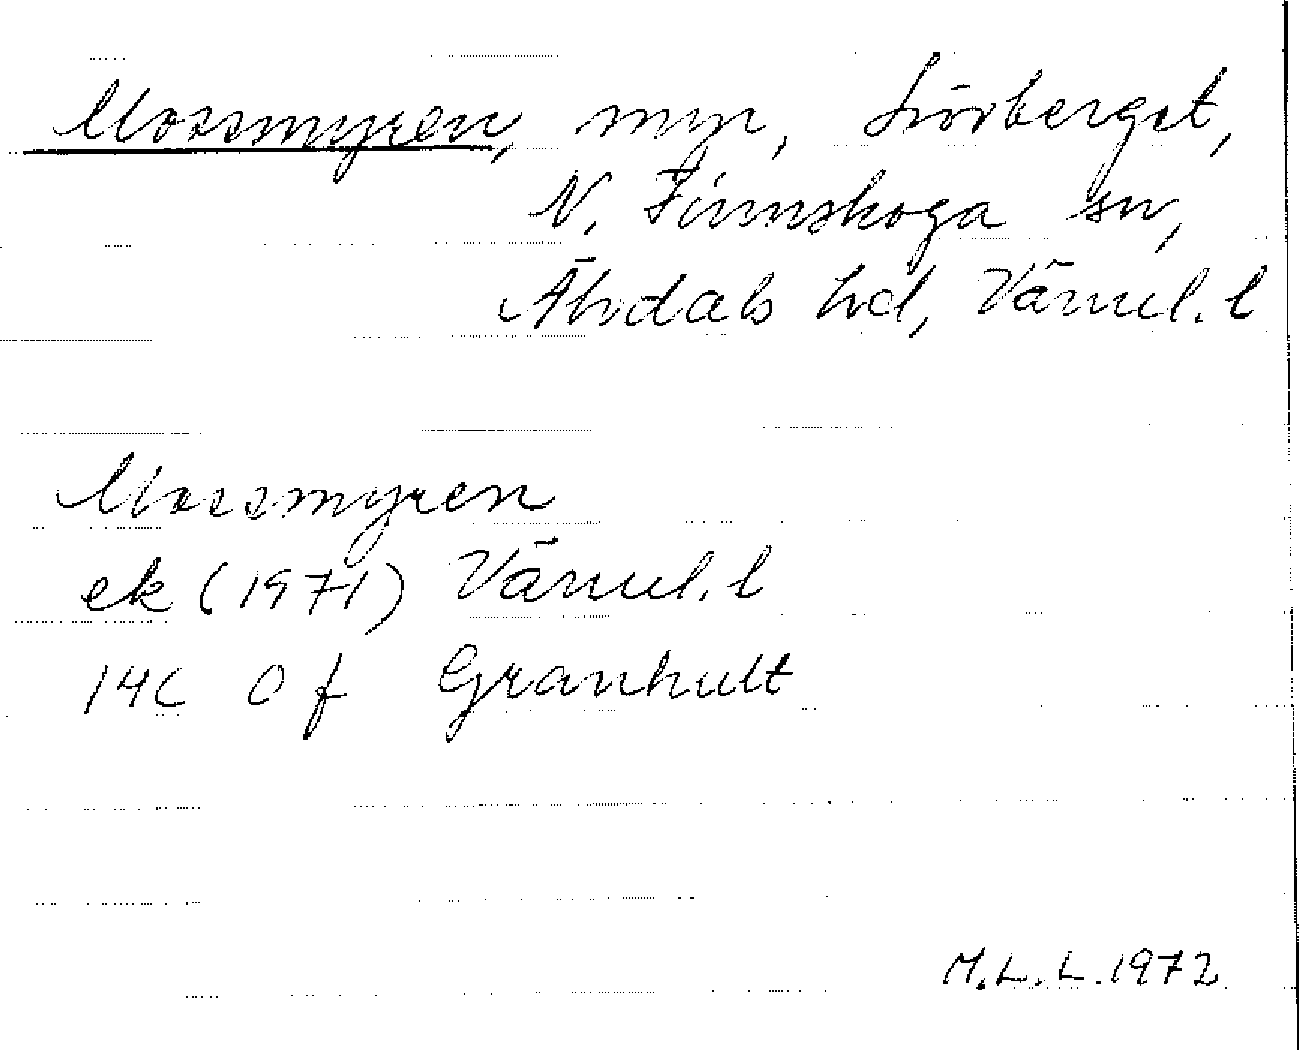 Mossmyren, myr, Lövberget,
N. Finnskoga sn,
Älvdals hd, Värml. l
Mossmyren
ek (1971) Värml. l
14C 0 f Granhult
M.L.L. 1972